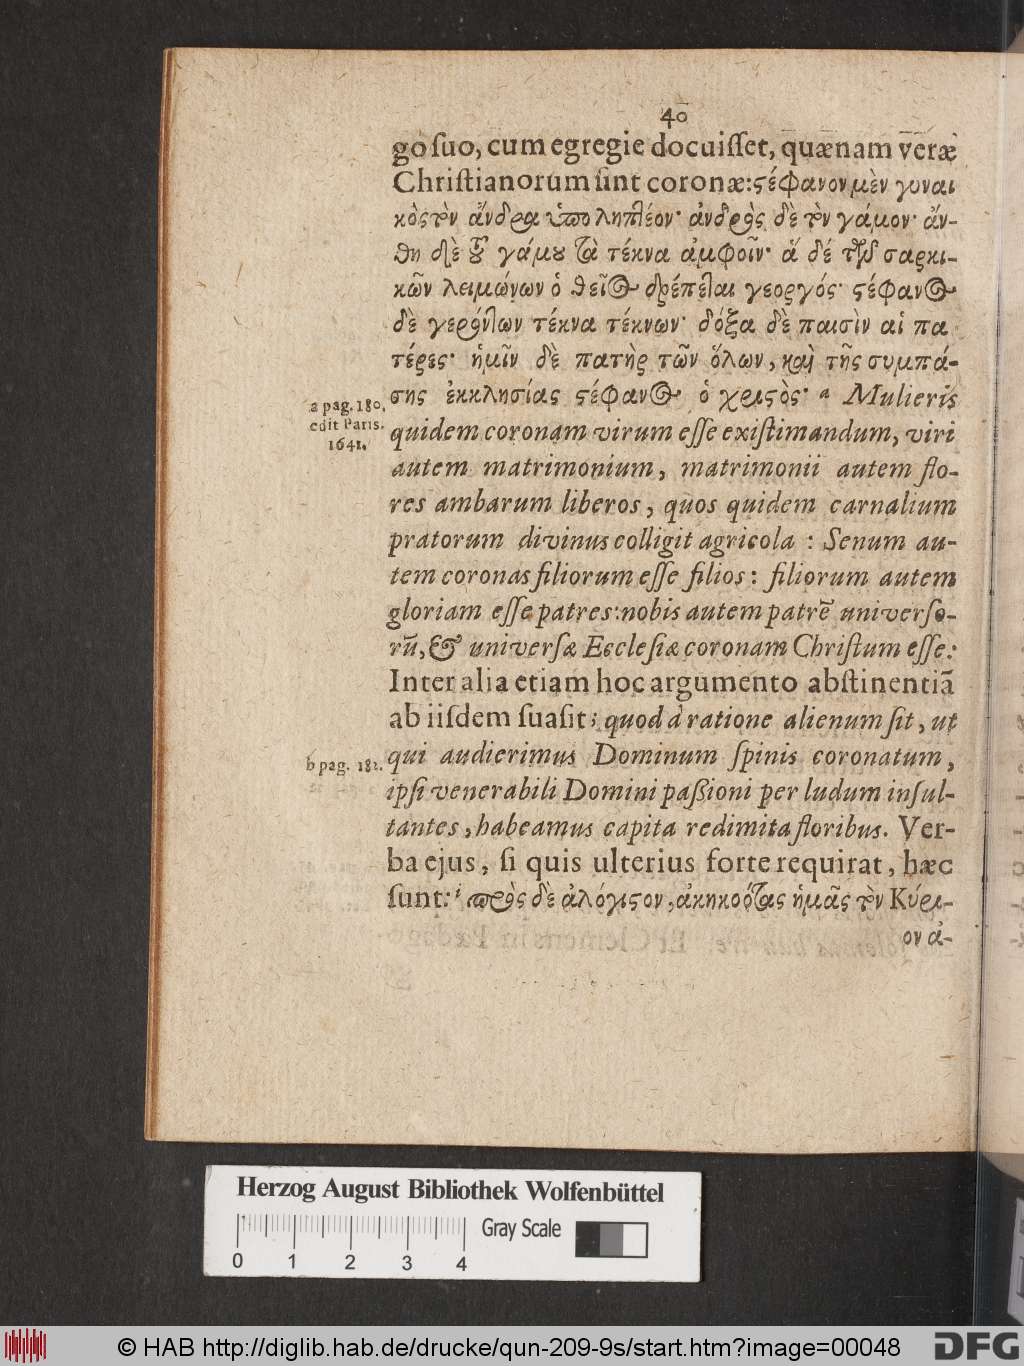 40
go ſuo, cum egregie docuiſſet, quænam veræ
Chriſtianorum ſint coronæ: ϛέφανον μὲν γυναι
κὸς τὸν ἄνδρα ὑποληπτέον· ἀνδρὸς δὲ τὸν γάμον· ἄν-
θη δὲ τοῦ γάμου τὰ τέκνα ἀμφοῖν· ἃ δὲ τῶν σαρκι-
κῶν λειμώνων ὁ θεῖος δρέπεται γεοργός· ϛέφανος
δὲ γερόντων τέκνα τέκνων· δόξα δὲ παισὶν αἱ πα
τέρες· ἡμῖν δὲ πατὴρ τῶν ὅλων, καὶ τῆς συμπά-
σης ἐκκλησίας ϛέφανος ὁ χριϛὸς· a Mulieris
a pag. 180.
edit Paris.
1641.
quidem coronam virum eſſe exiſtimandum, viri
autem matrimonium, matrimonii autem flo-
res ambarum liberos, quos quidem carnalium
pratorum divinus colligit agricola : Senum au-
tem coronas filiorum eſſe filios: filiorum autem
gloriam eſſe patres: nobis autem patrē univerſo-
rū, & univerſæ Eccleſiæ coronam Chriſtum eſſe:
Inter alia etiam hoc argumento abſtinentiã
ab iiſdem ſuaſit; quod à ratione alienum ſit, ut
qui audierimus Dominum ſpinis coronatum,
b pag. 181.
ipſi venerabili Domini paßioni per ludum inſul-
tantes, habeamus capita redimita floribus. Ver-
ba ejus, ſi quis ulterius forte requirat, hæc
ſunt: i πρὸς δὲ ἀλόγιϛον, ἀκηκοότας ἡμᾶς τὸν Κύρι-
ον ἀ-
Herzog August Bibliothek Wolfenbüttel
Gray Scale
0 1 2 3 4
© HAB http://diglib.hab.de/drucke/qun-209-9s/start.htm?image=00048
DFG